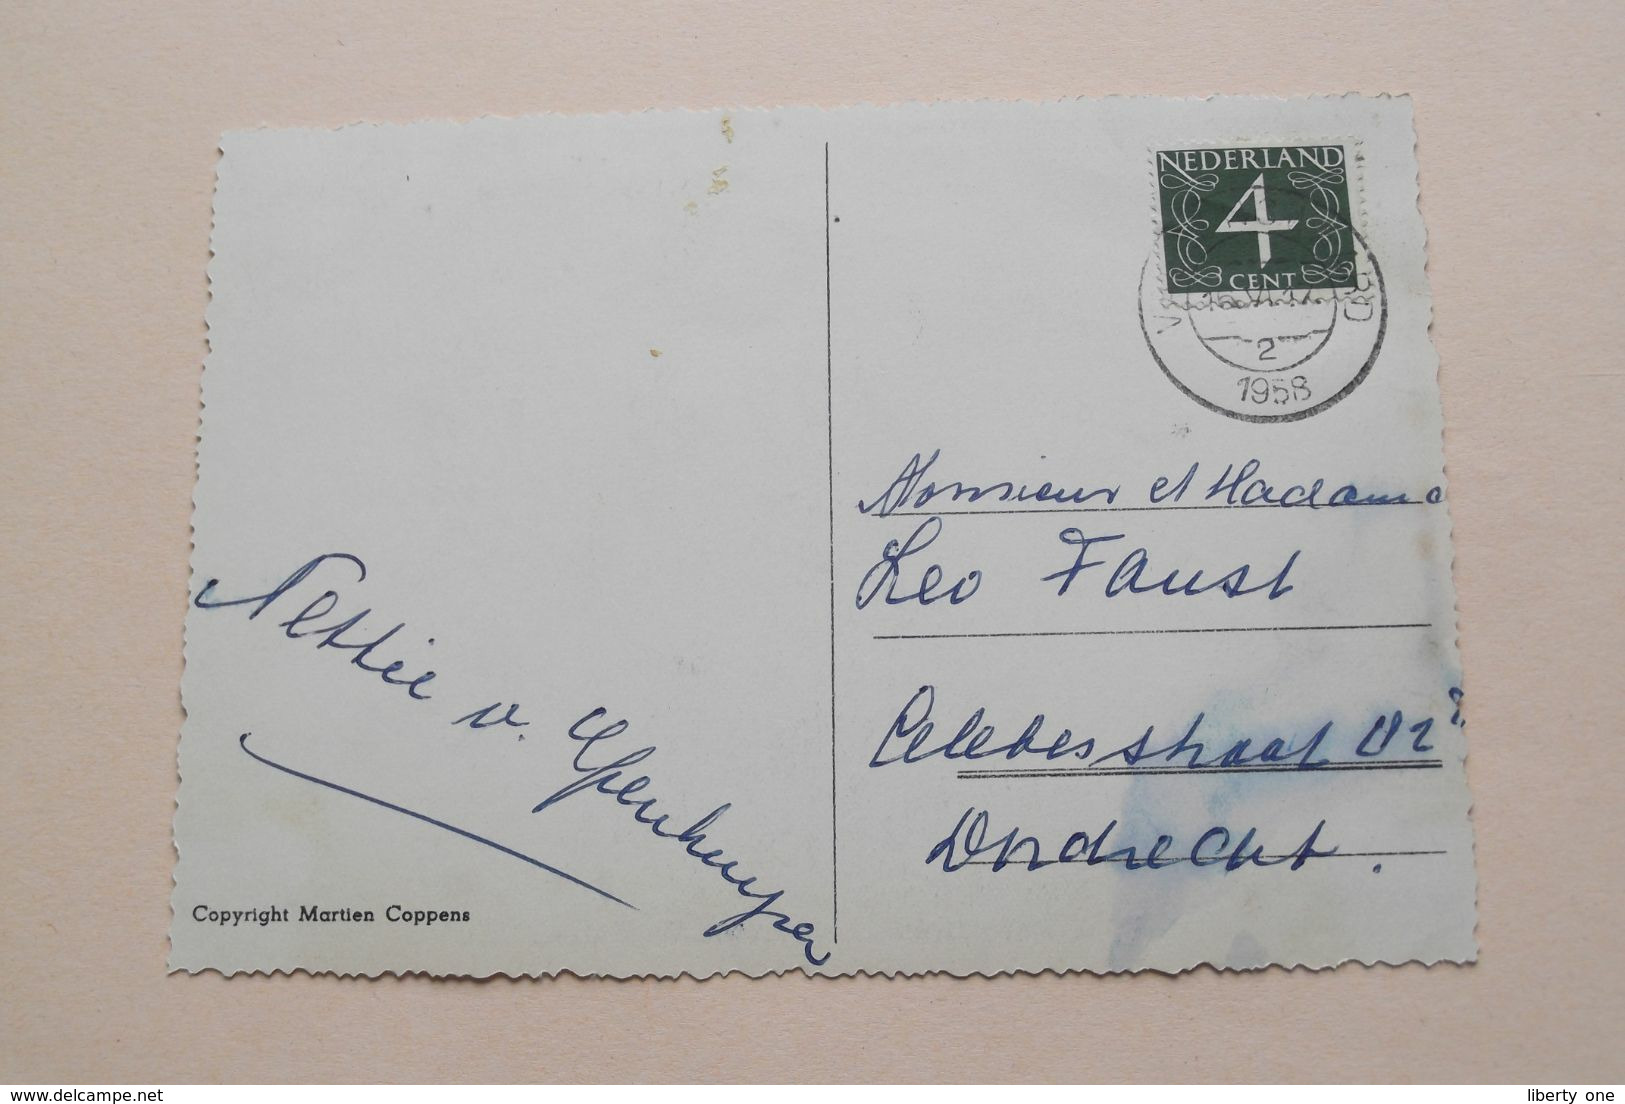 NEDERLAND
4
CENT
2
1958
Monsieur et Madame
Leo Faust
Celebesstraat
Dordrecht.
Nettie v.
Copyright Martien Coppens
delcampe.net
liberty one